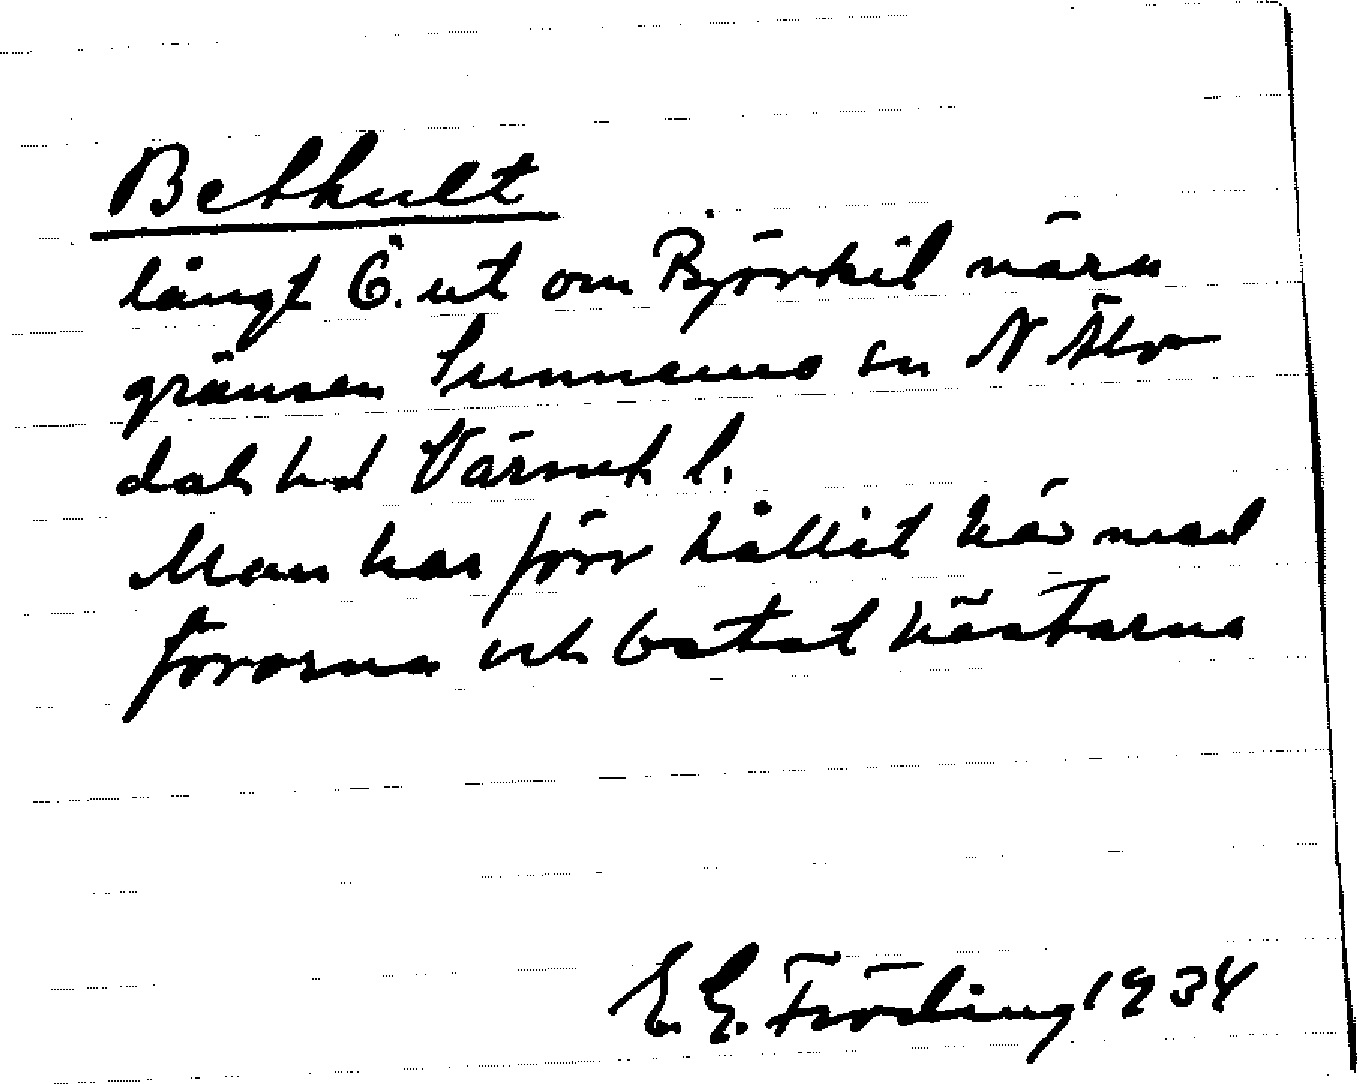 Bethult
långt Ö. ut om Björkil nära
gränsen Sunnemo o N Älv
dals hd Värml l.
Man har förr hållit här med
fororna och betat hästarna
E. G. Fröding 1934